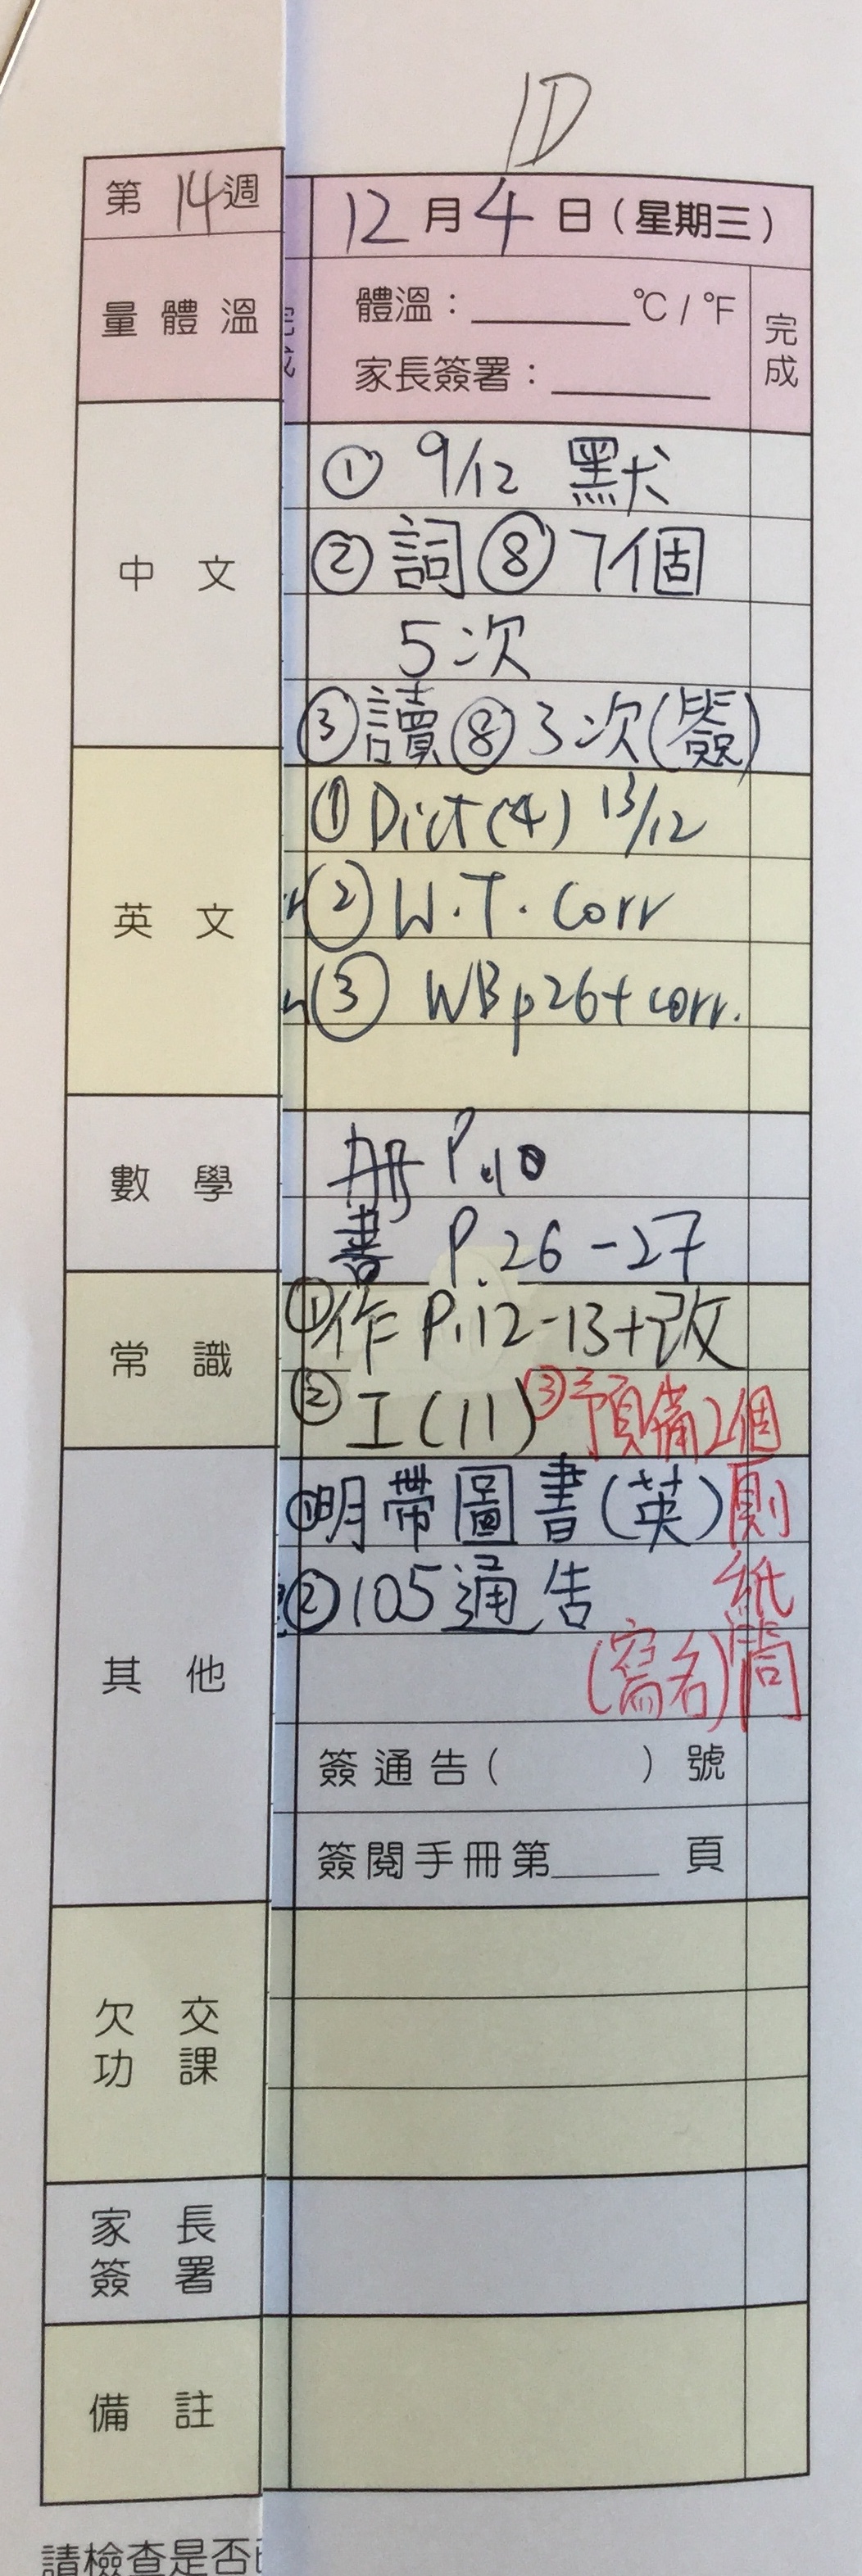 1D
第 14 週
12 月 4 日 ( 星期三 )
量體溫
體溫：______°C / °F
完成
家長簽署：______
中文
① 9/12 默
② 詞⑧ 7個
5次
③ 讀⑧ 3次(簽)
英文
① Dict(4) 13/12
② W.T. Corr
③ WB p26+corr.
數學
册 P.10
書 P.26-27
常識
①作 P.12-13+改
② 工(11)
③預備2個
廁
紙
筒
(寫名)
其他
①明帶圖書(英)
②105通告
簽通告(　　　)號
簽閱手冊第____頁
欠交
功課
家長
簽署
備註
請檢查是否